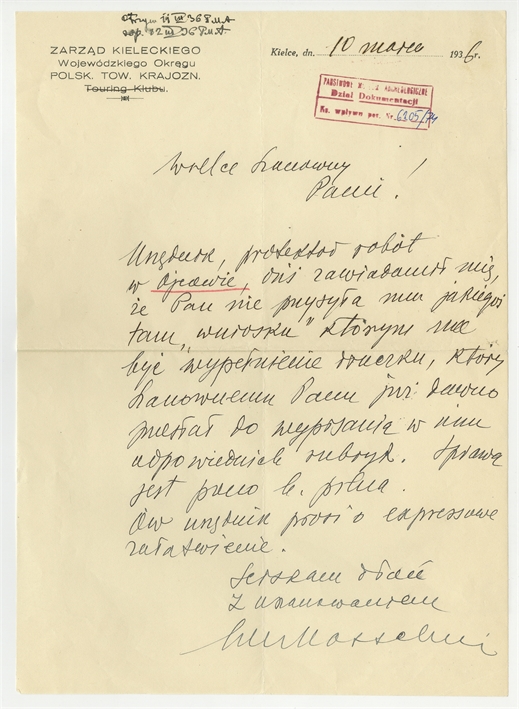 Otrzym 11 III 36 P.M.A
odp. 12 III 36 P.M.A
ZARZĄD KIELECKIEGO
Wojewódzkiego Okręgu
POLSK. TOW. KRAJOZN.
Touring Klubu
Kielce, dn. 10 marca 1936 r.
PAŃSTWOWE MUZEUM ARCHEOLOGICZNE
Dział Dokumentacji
Ks. wpływu poz. Nr. 6305/74
Wielce Szanowny
Panie!
Urzędnik, protektor robót
w Ojcowie, dziś zawiadamia mię,
że Pan nie przysyła mu jakiegoś
tam „wniosku" którym ma
być wypełnienie druczku, który
Szanownemu Panu już dawno
przesłał do wypisania w nim
odpowiednich rubryk. Sprawa
jest pono b. pilna.
Ów urzędnik prosi o expressowe
załatwienie.
Ściskam dłoń
z uszanowaniem